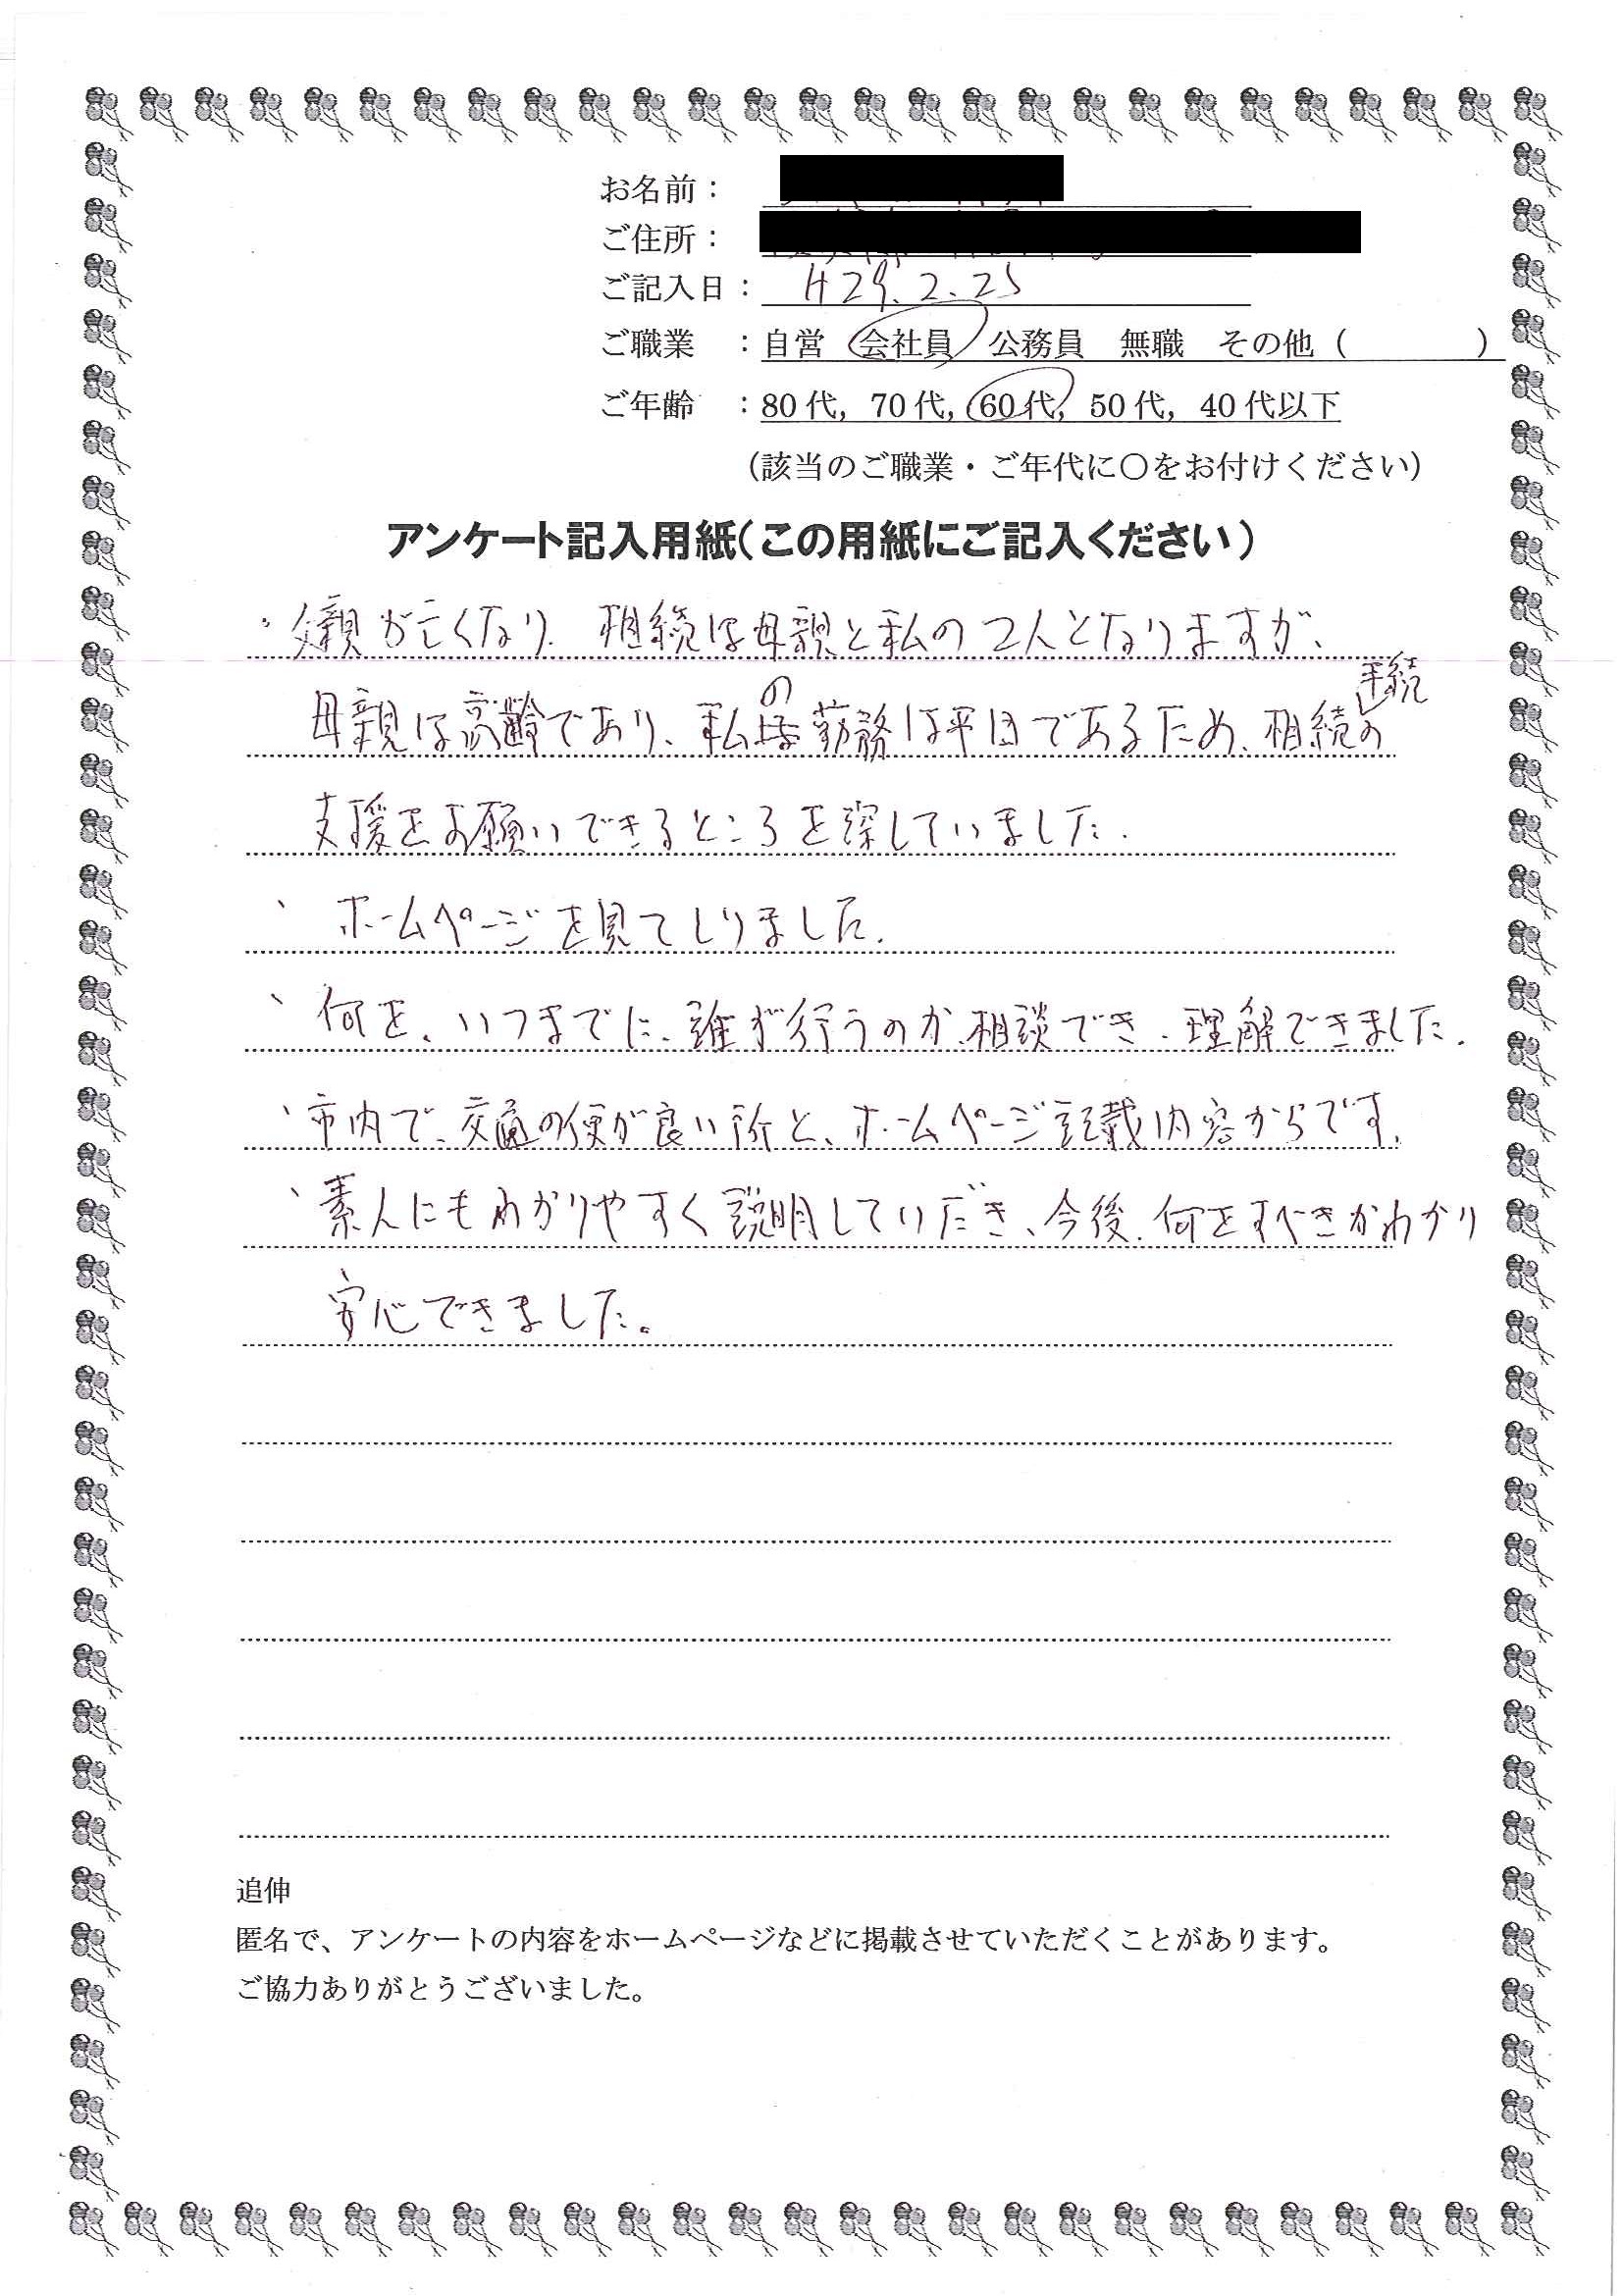 お名前：
ご住所：
ご記入日： H29.2.25
ご職業 ：自営 会社員 公務員 無職 その他（ ）
ご年齢 ：80代，70代，60代，50代，40代以下
（該当のご職業・ご年代に〇をお付けください）
アンケート記入用紙（この用紙にご記入ください）
・父親が亡くなり、相続は母親と私の2人となりますが、
母親は高齢であり、私の勤務は平日であるため、相続手続の
支援をお願いできるところを探していました．
、ホームページを見てしりました．
、何を、いつまでに、誰が行うのか、相談でき、理解できました．
、市内で、交通の便が良い所と、ホームページ記載内容からです．
、素人にもわかりやすく説明していだき、今後、何をすべきかわかり
安心できました。
追伸
匿名で、アンケートの内容をホームページなどに掲載させていただくことがあります。
ご協力ありがとうございました。